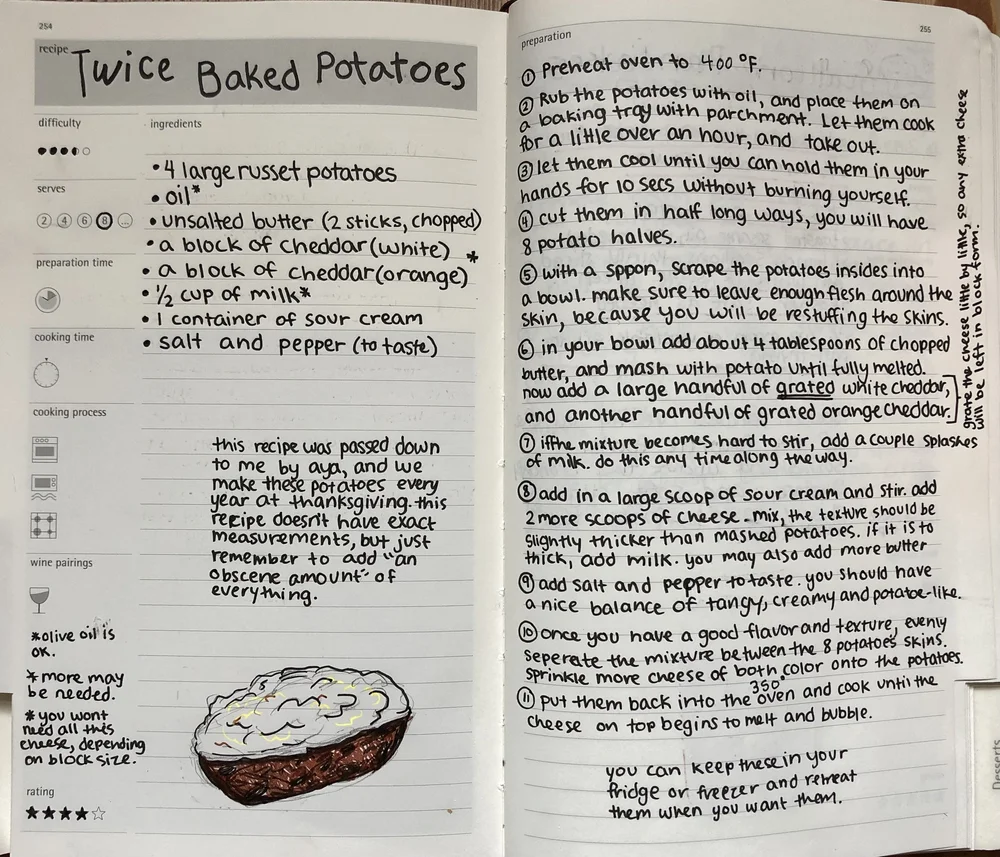 254
recipe
Twice Baked Potatoes
difficulty
serves
2 4 6 8 ...
preparation time
cooking time
cooking process
wine pairings
*olive oil is
ok.
*more may
be needed.
*you wont
need all this
cheese, depending
on block size.
rating
ingredients
• 4 large russet potatoes
• oil*
• unsalted butter (2 sticks, chopped)
• a block of cheddar (white)
*
• a block of cheddar (orange)
• ½ cup of milk*
• 1 container of sour cream
• salt and pepper (to taste)
this recipe was passed down
to me by aya, and we
make these potatoes every
year at thanksgiving. this
recipe doesn't have exact
measurements, but just
remember to add "an
obscene amount" of
everything.
255
preparation
① Preheat oven to 400 °F.
② Rub the potatoes with oil, and place them on
a baking tray with parchment. Let them cook
for a little over an hour, and take out.
③ let them cool until you can hold them in your
hands for 10 secs without burning yourself.
④ cut them in half long ways, you will have
8 potato halves.
⑤ with a sppon, scrape the potatoes insides into
a bowl. make sure to leave enough flesh around the
skin, because you will be restuffing the skins.
⑥ in your bowl add about 4 tablespoons of chopped
butter, and mash with potato until fully melted.
now add a large handful of grated white cheddar,
and another handful of grated orange cheddar.
grate the cheese little by little, so any extra cheese
will be left in block form.
⑦ if the mixture becomes hard to stir, add a couple splashes
of milk. do this any time along the way.
⑧ add in a large scoop of sour cream and stir. add
2 more scoops of cheese. mix, the texture should be
slightly thicker than mashed potatoes. if it is to
thick, add milk. you may also add more butter
⑨ add salt and pepper to taste. you should have
a nice balance of tangy, creamy and potatoe-like.
⑩ once you have a good flavor and texture, evenly
seperate the mixture between the 8 potatoes skins.
sprinkle more cheese of both color onto the potatoes.
350°
⑪ put them back into the oven and cook until the
cheese on top begins to melt and bubble.
you can keep these in your
fridge or freezer and reheat
them when you want them.
Desserts